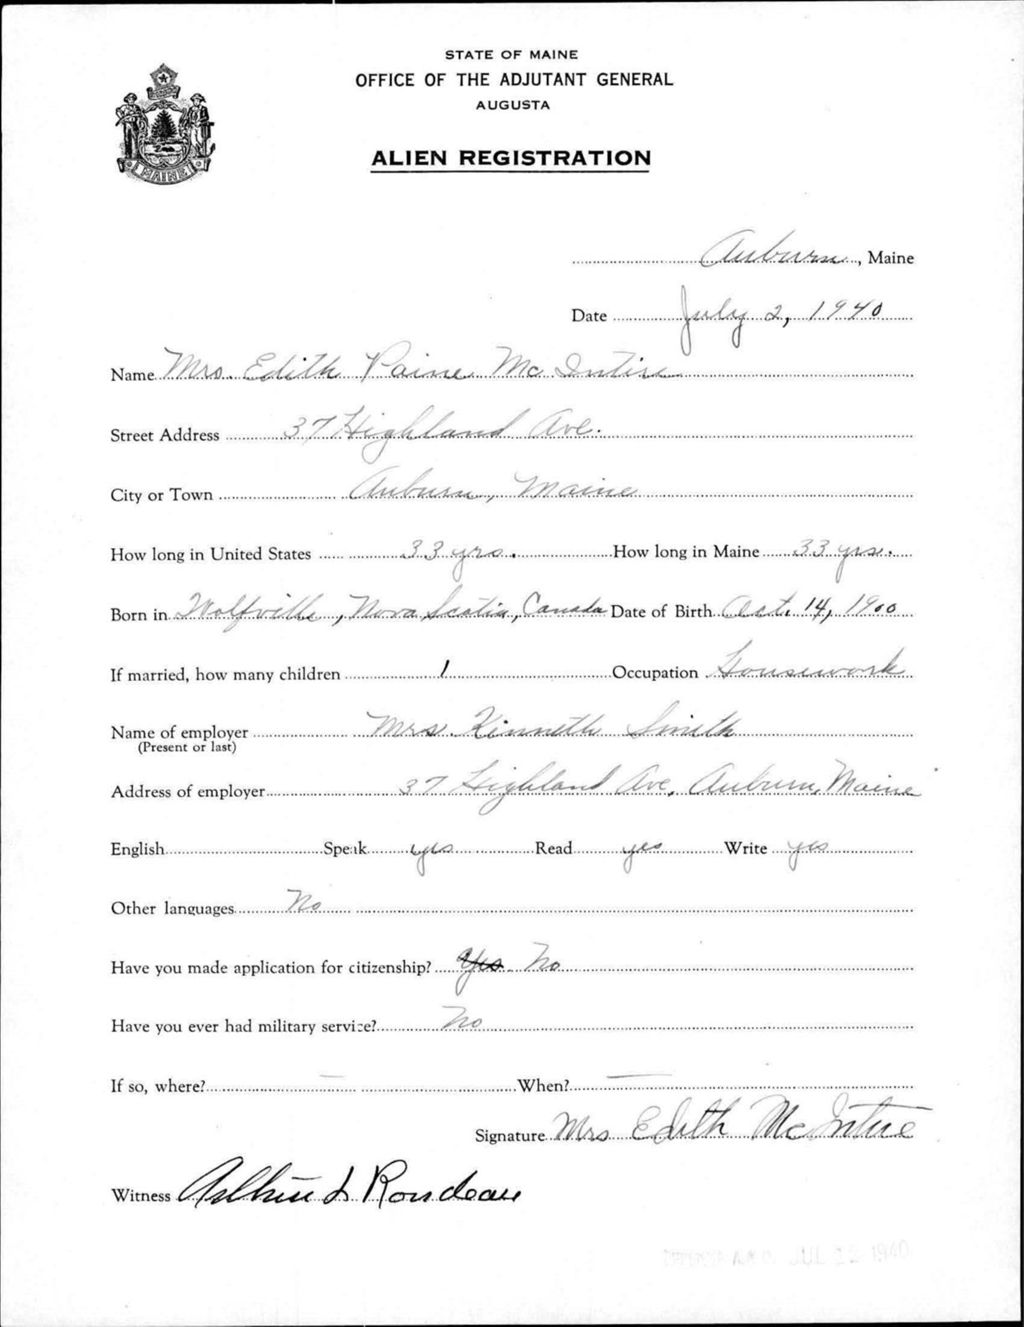 STATE OF MAINE
OFFICE OF THE ADJUTANT GENERAL
AUGUSTA
ALIEN REGISTRATION
MAINE
Auburn, Maine
Date July 2, 1940
Name Mrs. Edith Paine McIntire
Street Address 37 Highland Ave.
City or Town Auburn, Maine
How long in United States 33 yrs. How long in Maine 33 yrs.
Born in Wolfville, Nova Scotia, Canada Date of Birth Oct. 14, 1900
If married, how many children 1 Occupation Housework
Name of employer Mrs. Kinneth Smith
(Present or last)
Address of employer 37 Highland Ave, Auburn, Maine
English Speak yes Read yes Write yes
Other languages No
Have you made application for citizenship? Yes No
Have you ever had military service? No
If so, where? — When? —
Signature Mrs Edith McIntire
Witness L Rondeau
JUL 12 1940